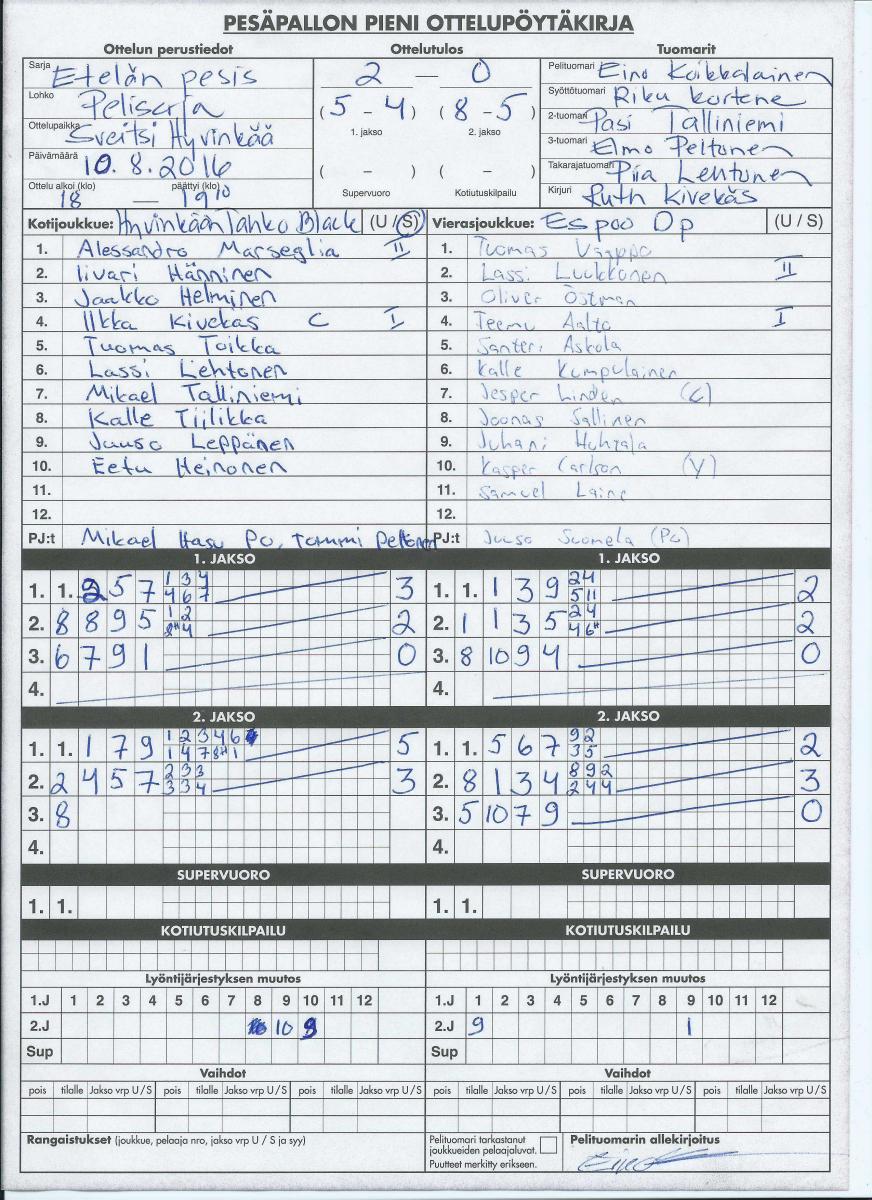 PESÄPALLON PIENI OTTELUPÖYTÄKIRJA
Ottelun perustiedot Ottelutulos Tuomarit
Sarja Etelän pesis
Lohko Pelisarja
Ottelupaikka Sveitsi Hyvinkää
Päivämäärä 10.8.2016
Ottelu alkoi (klo) päättyi (klo)
18 — 19 10
2 — 0
(5 - 4) (8 - 5)
1. jakso 2. jakso
( – ) ( – )
Supervuoro Kotiutuskilpailu
Pelituomari Eino Koikkalainen
Syöttötuomari Riku Kortene
2-tuomari Pasi Talliniemi
3-tuomari Elmo Peltonen
Takarajatuomari Piia Lehtonen
Kirjuri Ruth Kivekäs
Kotijoukkue: Hyvinkään Tahko Black (U / S) Vierasjoukkue: Espoo Op (U / S)
1. Alessandro Marseglia II 1. Tuomas
2. Iivari Hänninen 2. Lassi Luukkonen II
3. Jaakko Helminen 3. Oliver Östman
4. Ilkka Kivekäs C I 4. Teemu Aalto I
5. Tuomas Toikka 5. Santeri Askola
6. Lassi Lehtonen 6. Kalle Kumpulainen
7. Mikael Talliniemi 7. Jesper Linden (C)
8. Kalle Tiilikka 8. Joonas Sallinen
9. Juuso Leppänen 9. Juhani Huhtala
10. Eetu Heinonen 10. Kasper Carlson (V)
11. 11. Samuel Laine
12. 12.
PJ:t Mikael Hasu Po, Tommi Peltonen PJ:t Juuso Suomela (Po)
1. JAKSO 1. JAKSO
1. 1. 2 5 7 1 3 4 3 1. 1. 1 3 9 2 4 2
4 6 7 5 11
2. 8 8 9 5 1 2 2 2. 1 1 3 5 2 4 2
8* 4 4 6*
3. 6 7 9 1 0 3. 8 10 9 4 0
4. 4.
2. JAKSO 2. JAKSO
1. 1. 1 7 9 1 2 3 4 6 5 1. 1. 5 6 7 9 2 2
1 4 7 8* 1 3 5
2. 2 4 5 7 2 3 3 3 2. 8 1 3 4 8 9 2 3
3 3 4 2 4 4
3. 8 3. 5 10 7 9 0
4. 4.
SUPERVUORO SUPERVUORO
1. 1. 1. 1.
KOTIUTUSKILPAILU KOTIUTUSKILPAILU
Lyöntijärjestyksen muutos Lyöntijärjestyksen muutos
1.J 1 2 3 4 5 6 7 8 9 10 11 12 1.J 1 2 3 4 5 6 7 8 9 10 11 12
2.J 10 9 2.J 9 1
Sup Sup
Vaihdot Vaihdot
pois tilalle Jakso vrp U / S pois tilalle Jakso vrp U / S pois tilalle Jakso vrp U / S pois tilalle Jakso vrp U / S
Rangaistukset (joukkue, pelaaja nro, jakso vrp U / S ja syy)
Pelituomari tarkastanut
joukkueiden pelaajaluvat.
Puutteet merkitty erikseen.
Pelituomarin allekirjoitus